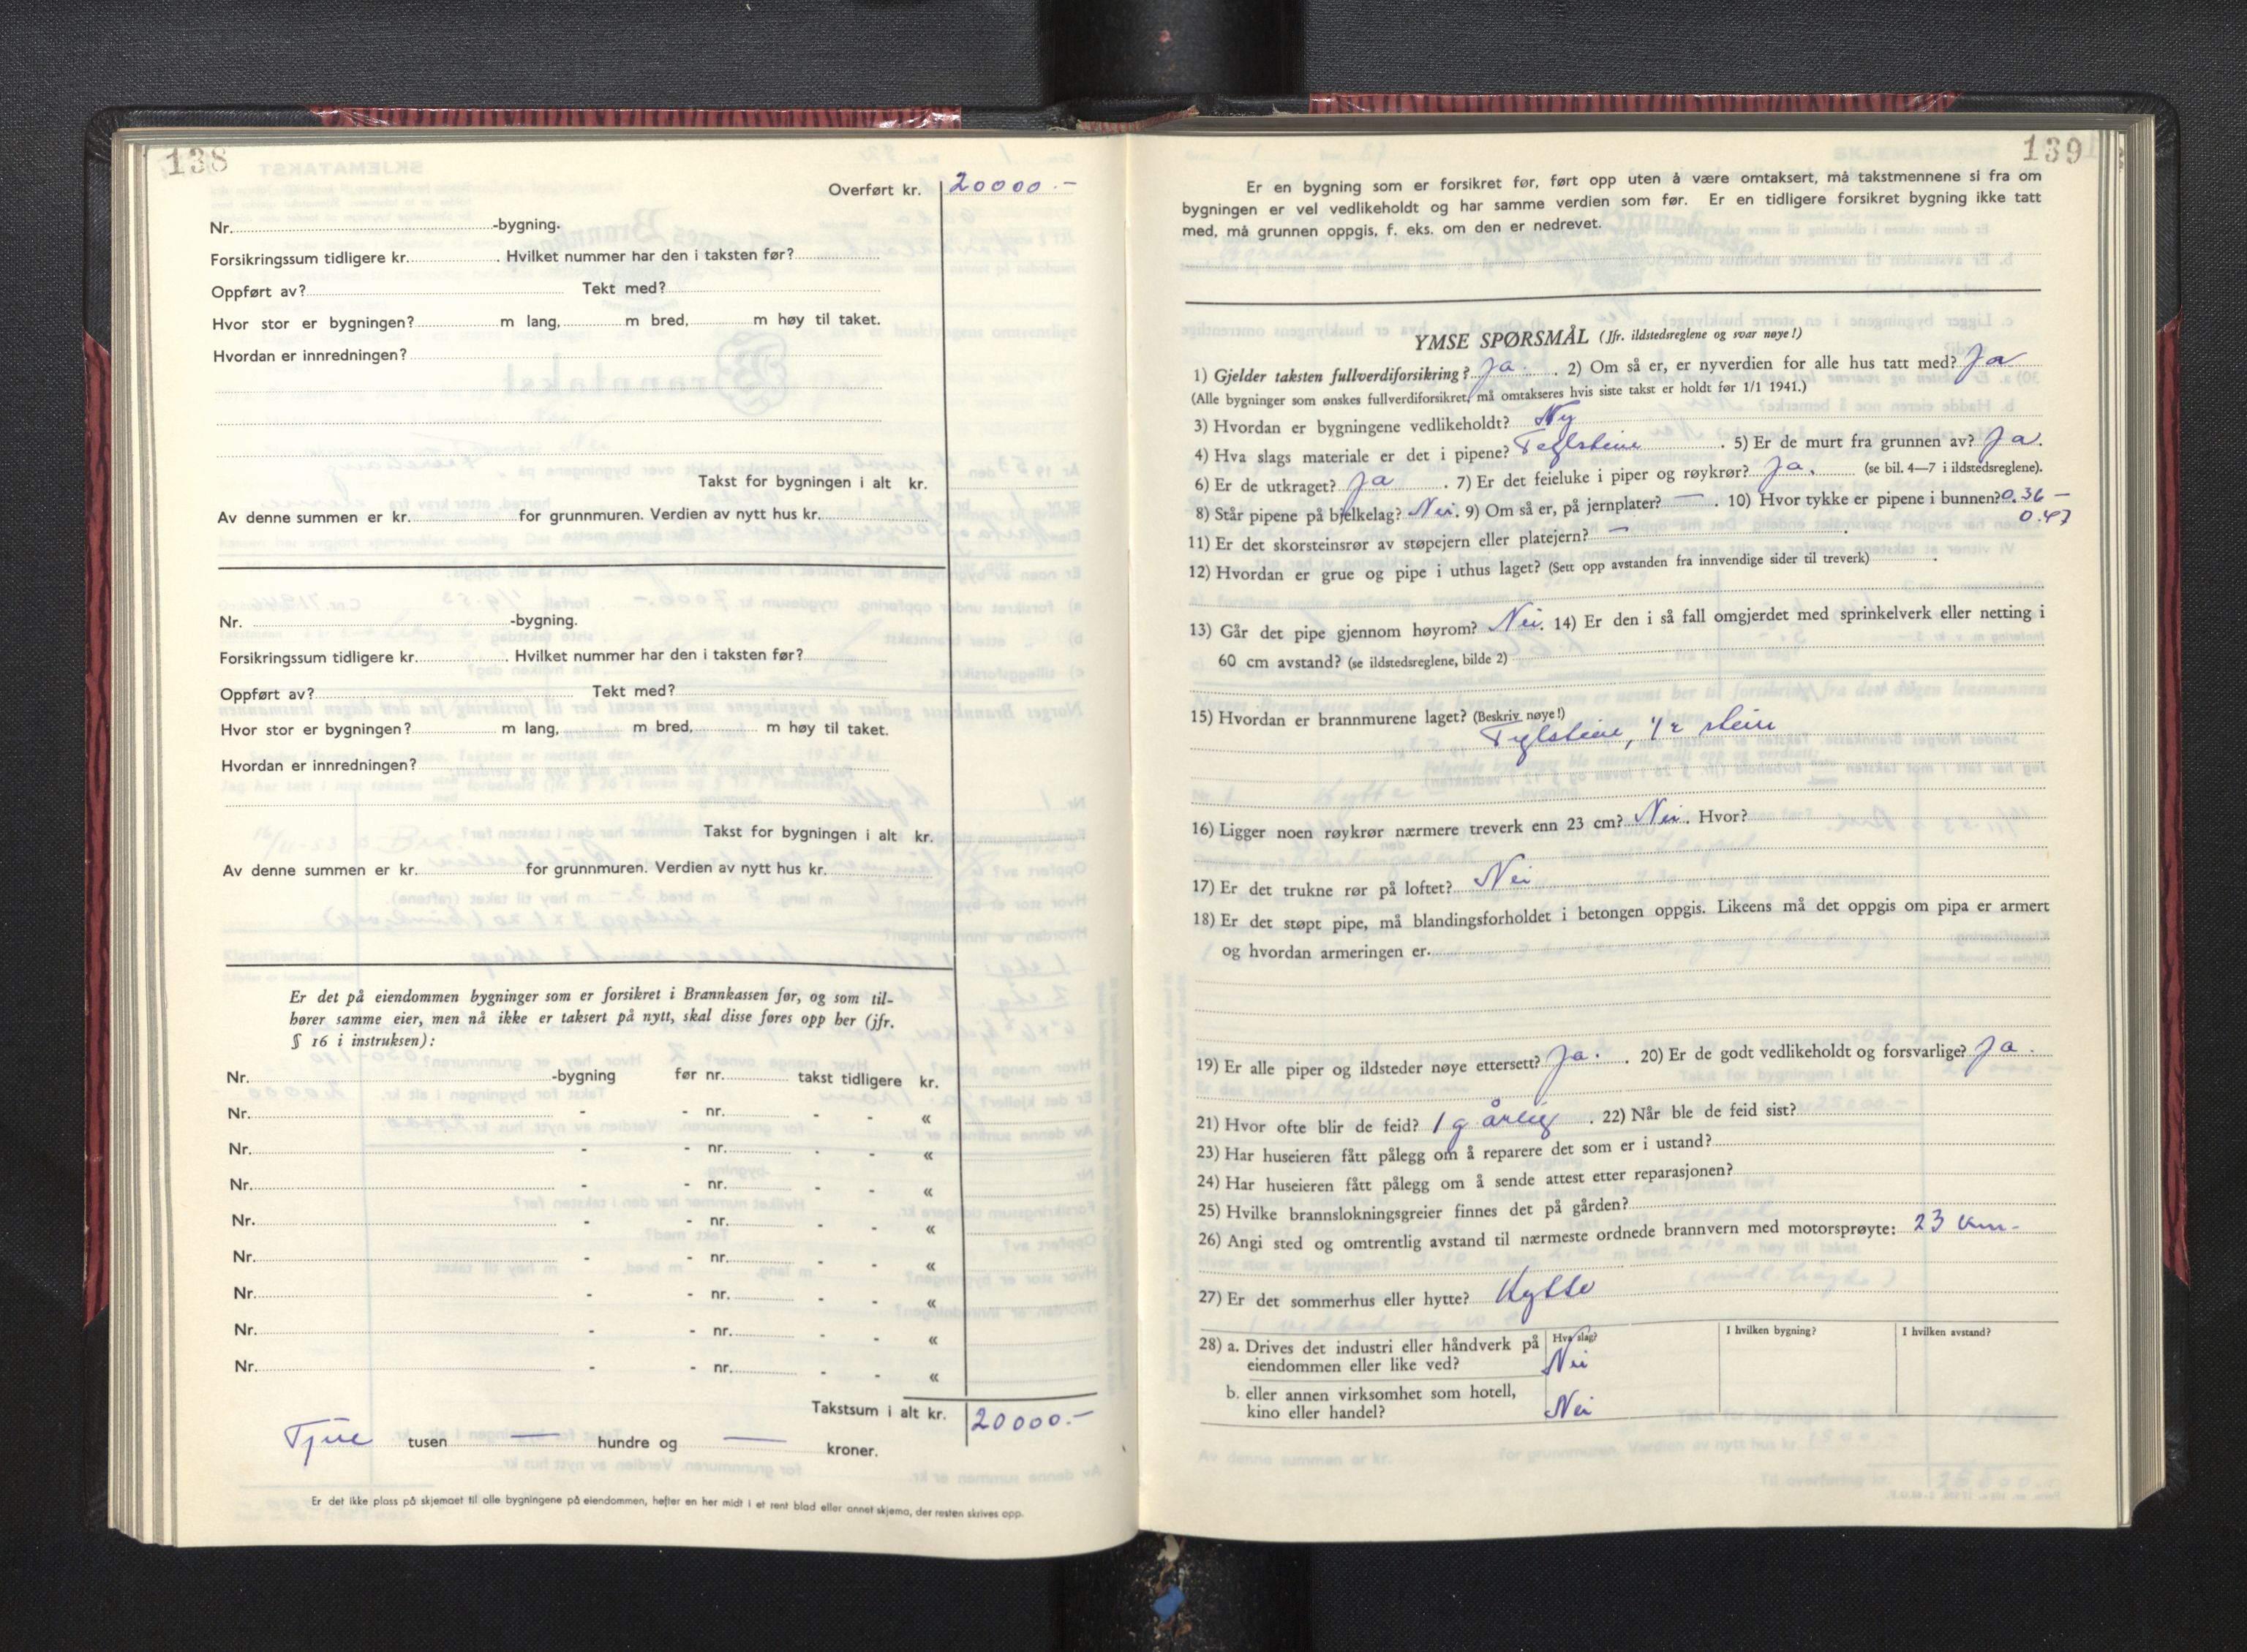 138
Overført kr. 20000.-
Nr. -bygning.
Forsikringssum tidligere kr. . Hvilket nummer har den i taksten før?
Oppført av? Tekt med?
Hvor stor er bygningen? m lang, m bred, m høy til taket.
Hvordan er innredningen?
Takst for bygningen i alt kr.
Av denne summen er kr. for grunnmuren. Verdien av nytt hus kr.
Nr. -bygning.
Forsikringssum tidligere kr. . Hvilket nummer har den i taksten før?
Oppført av? Tekt med?
Hvor stor er bygningen? m lang, m bred, m høy til taket.
Hvordan er innredningen?
Takst for bygningen i alt kr.
Av denne summen er kr. for grunnmuren. Verdien av nytt hus kr.
Er det på eiendommen bygninger som er forsikret i Brannkassen før, og som til-
hører samme eier, men nå ikke er taksert på nytt, skal disse føres opp her (jfr.
§ 16 i instruksen):
Nr. -bygning før nr. takst tidligere kr.
Nr. - - nr. - - «
Nr. - - nr. - - «
Nr. - - nr. - - «
Nr. - - nr. - - «
Nr. - - nr. - - «
Nr. - - nr. - - «
Nr. - - nr. - - «
Nr. - - nr. - - «
Takstsum i alt kr. 20000.-
Tjue tusen — hundre og — kroner.
Er det ikke plass på skjemaet til alle bygningene på eiendommen, hefter en her midt i et rent blad eller annet skjema, der resten skrives opp.
139
Er en bygning som er forsikret før, ført opp uten å være omtaksert, må takstmennene si fra om
bygningen er vel vedlikeholdt og har samme verdien som før. Er en tidligere forsikret bygning ikke tatt
med, må grunnen oppgis, f. eks. om den er nedrevet.
YMSE SPØRSMÅL (Jfr. ildstedsreglene og svar nøye!)
1) Gjelder taksten fullverdiforsikring? Ja. . 2) Om så er, er nyverdien for alle hus tatt med? Ja
(Alle bygninger som ønskes fullverdiforsikret, må omtakseres hvis siste takst er holdt før 1/1 1941.)
3) Hvordan er bygningene vedlikeholdt? Ny
4) Hva slags materiale er det i pipene? Teglstein . 5) Er de murt fra grunnen av? Ja.
6) Er de utkraget? Ja . 7) Er det feieluke i piper og røykrør? Ja. (se bil. 4—7 i ildstedsreglene).
8) Står pipene på bjelkelag? Nei. 9) Om så er, på jernplater? — . 10) Hvor tykke er pipene i bunnen? 0.36 -
0.47
11) Er det skorsteinsrør av støpejern eller platejern? — .
12) Hvordan er grue og pipe i uthus laget? (Sett opp avstanden fra innvendige sider til treverk) .
13) Går det pipe gjennom høyrom? Nei. 14) Er den i så fall omgjerdet med sprinkelverk eller netting i
60 cm avstand? (se ildstedsreglene, bilde 2)
15) Hvordan er brannmurene laget? (Beskriv nøye!)
Teglstein, 1/2 stein
16) Ligger noen røykrør nærmere treverk enn 23 cm? Nei. Hvor?
17) Er det trukne rør på loftet? Nei
18) Er det støpt pipe, må blandingsforholdet i betongen oppgis. Likeens må det oppgis om pipa er armert
og hvordan armeringen er.
19) Er alle piper og ildsteder nøye ettersett? Ja. . 20) Er de godt vedlikeholdt og forsvarlige? Ja.
21) Hvor ofte blir de feid? 1 g årlig . 22) Når ble de feid sist?
23) Har huseieren fått pålegg om å reparere det som er i ustand?
24) Har huseieren fått pålegg om å sende attest etter reparasjonen?
25) Hvilke brannslokningsgreier finnes det på gården?
26) Angi sted og omtrentlig avstand til nærmeste ordnede brannvern med motorsprøyte: 23 km.
27) Er det sommerhus eller hytte? Hytte
28) a. Drives det industri eller håndverk på Hva slag? I hvilken bygning? I hvilken avstand?
eiendommen eller like ved? Nei
b. eller annen virksomhet som hotell,
kino eller handel? Nei